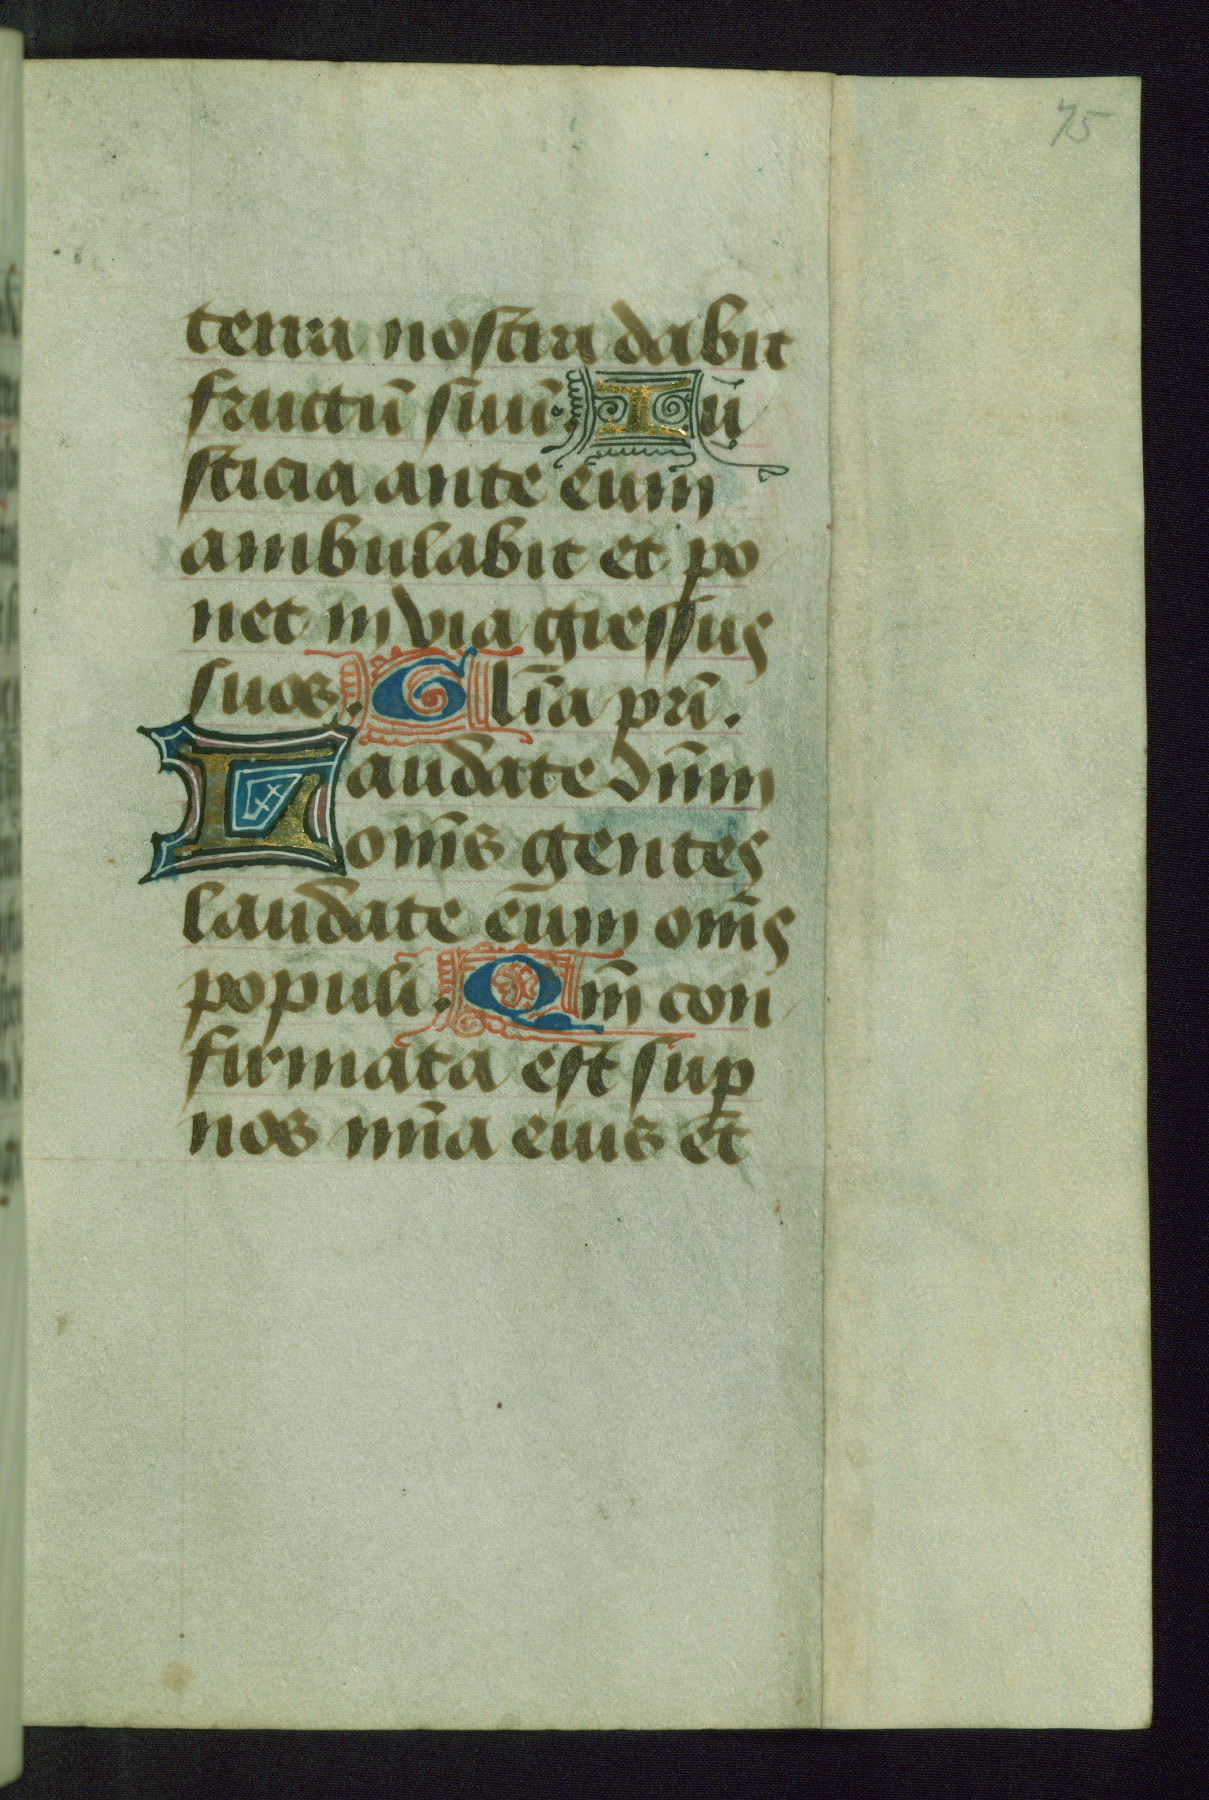 75
terra nostra dabit
fructū suū. Iu
sticia ante eum
ambulabit et po
net in via gressus
suos. Glīa pr̄i.
Laudate dn̄m
om̄s gentes
laudate eum om̄s
populi. Qm̄ con
firmata est suꝑ
nos mīa eius et